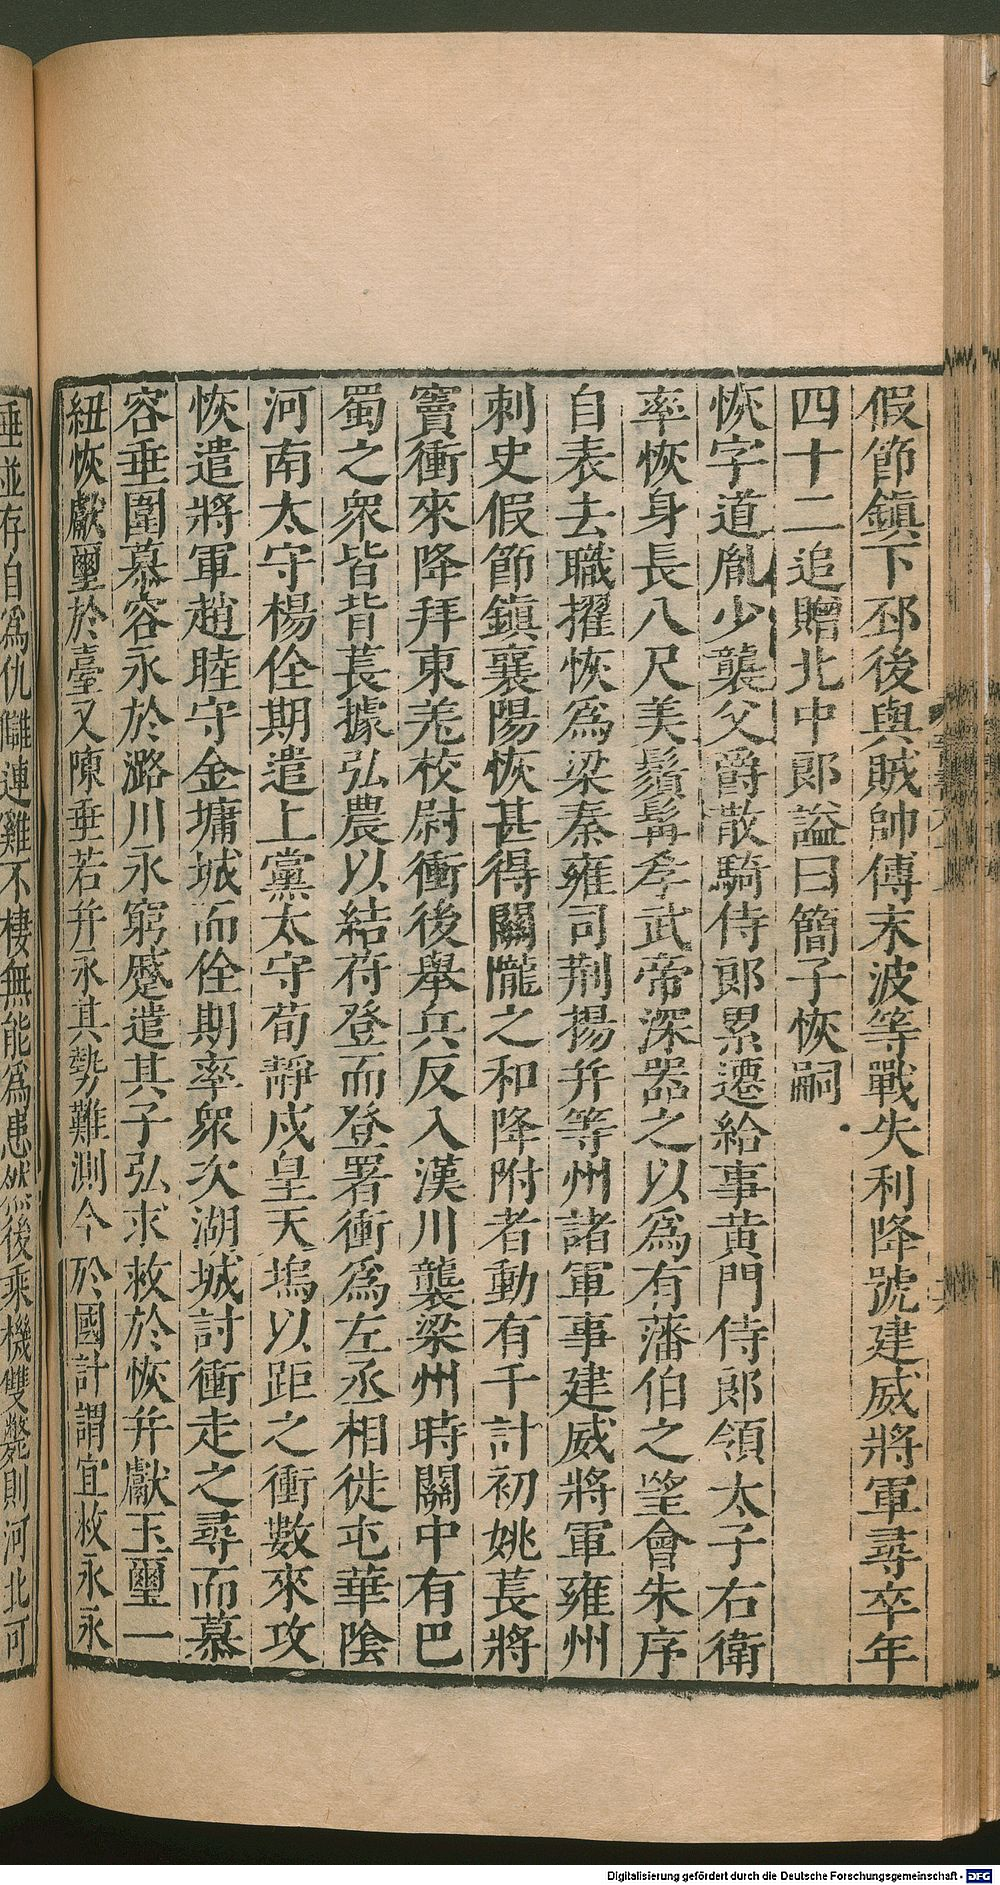 假節鎮下邳後與賊帥傅末波等戰失利降號建威將軍尋卒年
四十二追贈北中郎謚曰簡子恢嗣
恢字道胤少襲父爵散騎侍郎累遷給事黃門侍郎領太子右衛
率恢身長八尺美鬚髯孝武帝深器之以爲有藩伯之望會朱序
自表去職擢恢爲梁秦雍司荆揚并等州諸軍事建威將軍雍州
刺史假節鎮襄陽恢甚得關隴之和降附者動有千計初姚萇將
竇衝來降拜東羌校尉衝後舉兵反入漢川襲梁州時關中有巴
蜀之衆皆背萇據弘農以結苻登而登署衝爲左丞相徙屯華隂
河南太守楊佺期遣上黨太守荀靜戍皇天塢以距之衝數來攻
恢遣將軍趙睦守金墉城而佺期率衆次湖城討衝走之尋而慕
容垂圍慕容永於潞川永窮蹙遣其子弘求救於恢并獻玉璽一
紐恢獻璽於臺又陳垂若并永其勢難測今於國計謂宜救永永
垂並存自爲仇讎連雞不棲無能爲患然後乘機雙斃則河北可
Digitalisierung gefördert durch die Deutsche Forschungsgemeinschaft - DFG